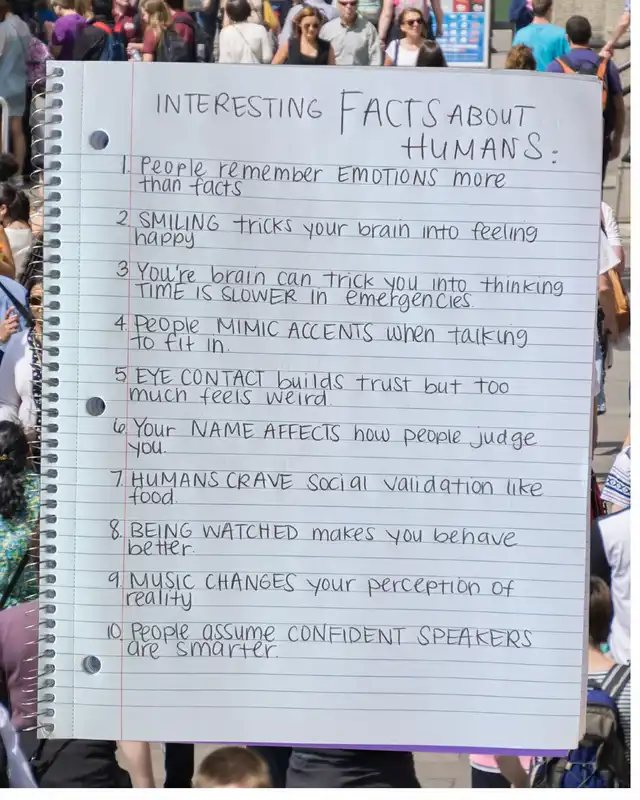 INTERESTING FACTS ABOUT
HUMANS:
1. People remember EMOTIONS more
than facts
2. SMILING tricks your brain into feeling
happy
3 You're brain can trick you into thinking
TIME IS SLOWER in emergencies.
4. People MIMIC ACCENTS when talking
to fit in.
5. EYE CONTACT builds trust but too
much feels weird.
6. Your NAME AFFECTS how people judge
you.
7. HUMANS CRAVE social validation like
food.
8. BEING WATCHED makes you behave
better.
9. MUSIC CHANGES your perception of
reality
10. People assume CONFIDENT SPEAKERS
are smarter.